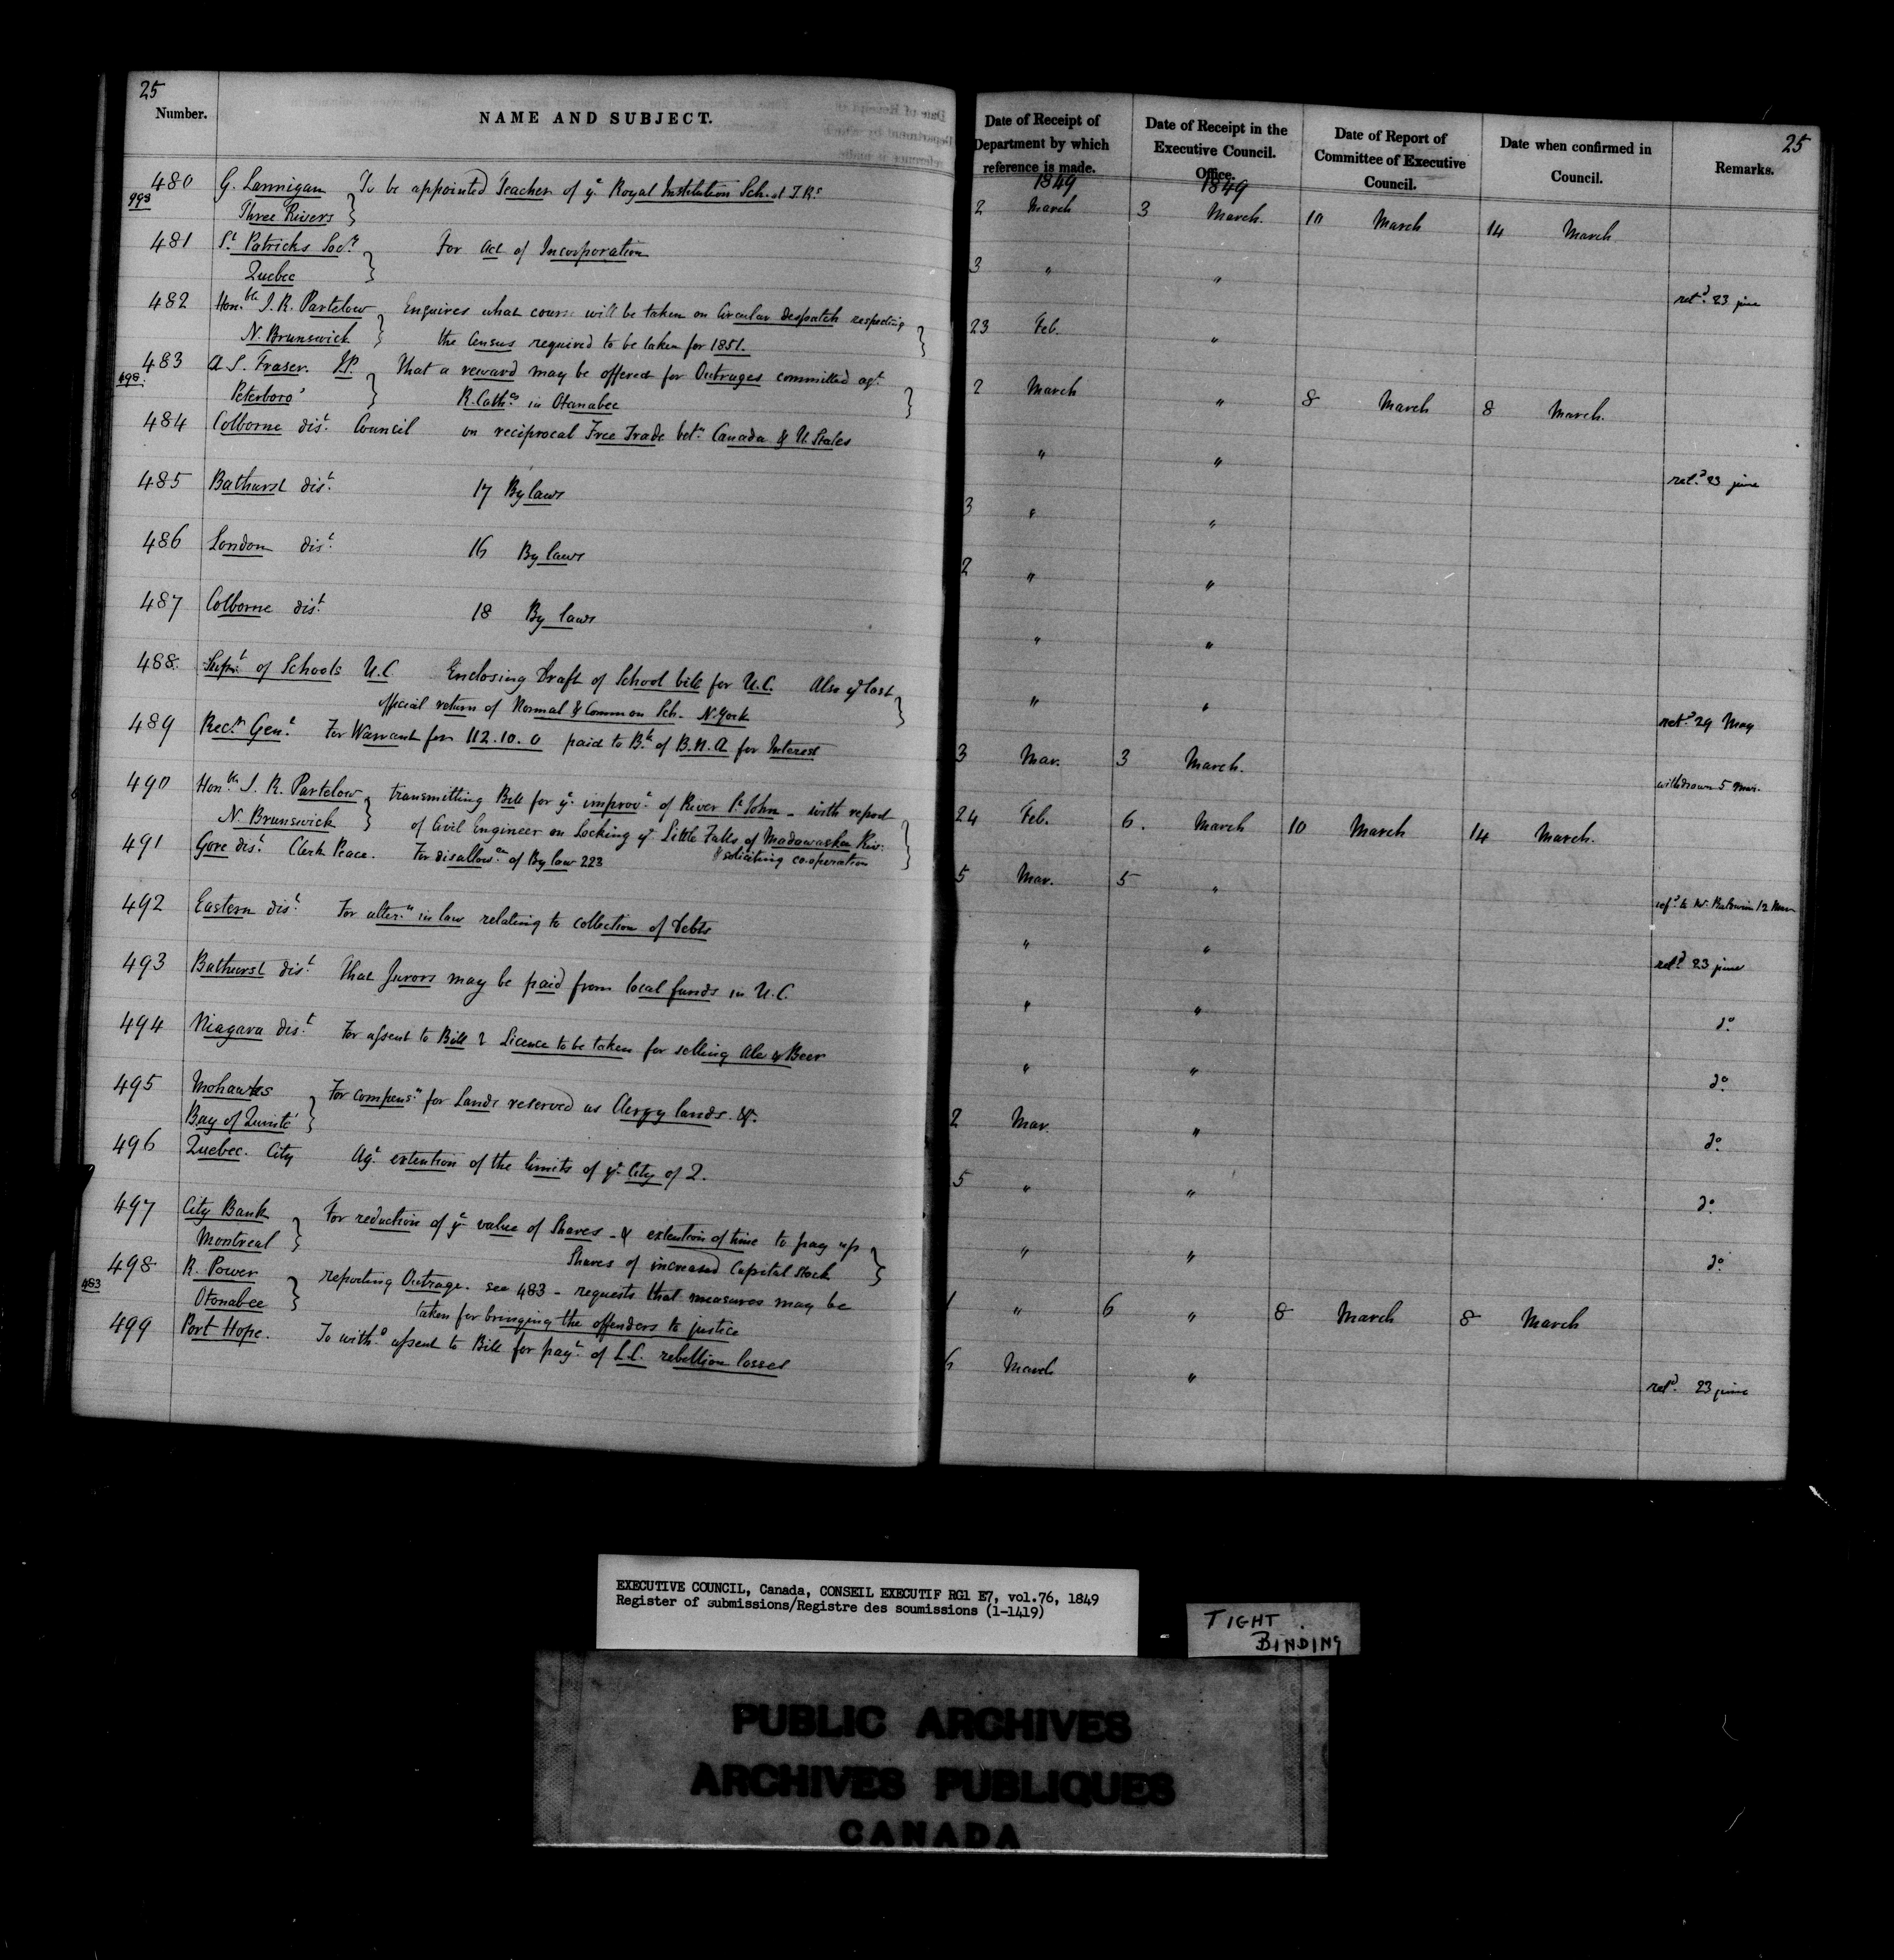 25
Number. NAME AND SUBJECT.
480 G. Lannigan } To be appointed Teacher of ye Royal Institution Sch. at T. Rs
993 Three Rivers
481 St Patricks Socy } For Act of Incorporation
Quebec
482 Honble J. R. Partelow } Enquires what course will be taken on Circular despatch respecting }
N. Brunswick the Census required to be taken for 1851.
483 A S. Fraser. J.P. } That a reward may be offered for Outrages committed agt }
498. Peterboro' R. Cathcs in Otanabee
484 Colborne dist Council on reciprocal Free Trade betn Canada & U. States
485 Bathurst dist 17 By laws
486 London dist 16 By laws
487 Colborne dist 18 By laws
488. Supt of Schools U.C. Enclosing Draft of School bill for U.C. Also ye last }
official return of Normal & Common Sch. N. York
489 Recr Genl For Warrant for 112.10.0 paid to Bk of B.N.A for Interest
490 Honble J. R. Partelow } transmitting Bill for ye improvt of River St John - with report }
N. Brunswick of Civil Engineer on Locking ye Little Falls of Madawaska Riv:
& soliciting co.operation
491 Gore dist Clerk Peace. For disallowce of By law 223
492 Eastern dist For altern in law relating to collection of debts
493 Bathurst dist That Jurors may be paid from local funds in U.C.
494 Niagara dist For assent to Bill & Licence to be taken for selling Ale & Beer
495 Mohawks } For compensn for Lands reserved as Clergy lands. &c.
Bay of Quinté
496 Quebec. City Agt extention of the limits of ye City of Q.
497 City Bank } For reduction of ye value of Shares - & extention of time to pay up }
Montreal Shares of increased Capital Stock
498 R. Power } reporting Outrage. see 483 - requests that measures may be
483 Otonabee taken for bringing the offenders to justice
499 Port Hope. To withd assent to Bill for payt of L.C. rebellion losses
25
Date of Receipt of Department by which reference is made. Date of Receipt in the Executive Council. Office. Date of Report of Committee of Executive Council. Date when confirmed in Council. Remarks.
1849 1849
2 March 3 March. 10 March 14 March
3 " "
retd 23 june
23 Feb. "
2 March " 8 March 8 March.
" "
retd 23 june
3 " "
2 " "
" "
" "
retd 29 May
3 Mar. 3 March.
withdrawn 5 Mar.
24 Feb. 6. March 10 March 14 March.
5 Mar. 5 "
refd to Mr. Baldwin 12 Mar
" "
retd 23 june
" "
do
" "
do
2 Mar. "
do
5 " "
do
" "
do
1 " 6 " 8 March 8 March
6 March "
retd 23 june
EXECUTIVE COUNCIL, Canada, CONSEIL EXECUTIF RG1 E7, vol.76, 1849
Register of submissions/Registre des soumissions (1-1419)
TIGHT
BINDING
PUBLIC ARCHIVES
ARCHIVES PUBLIQUES
CANADA